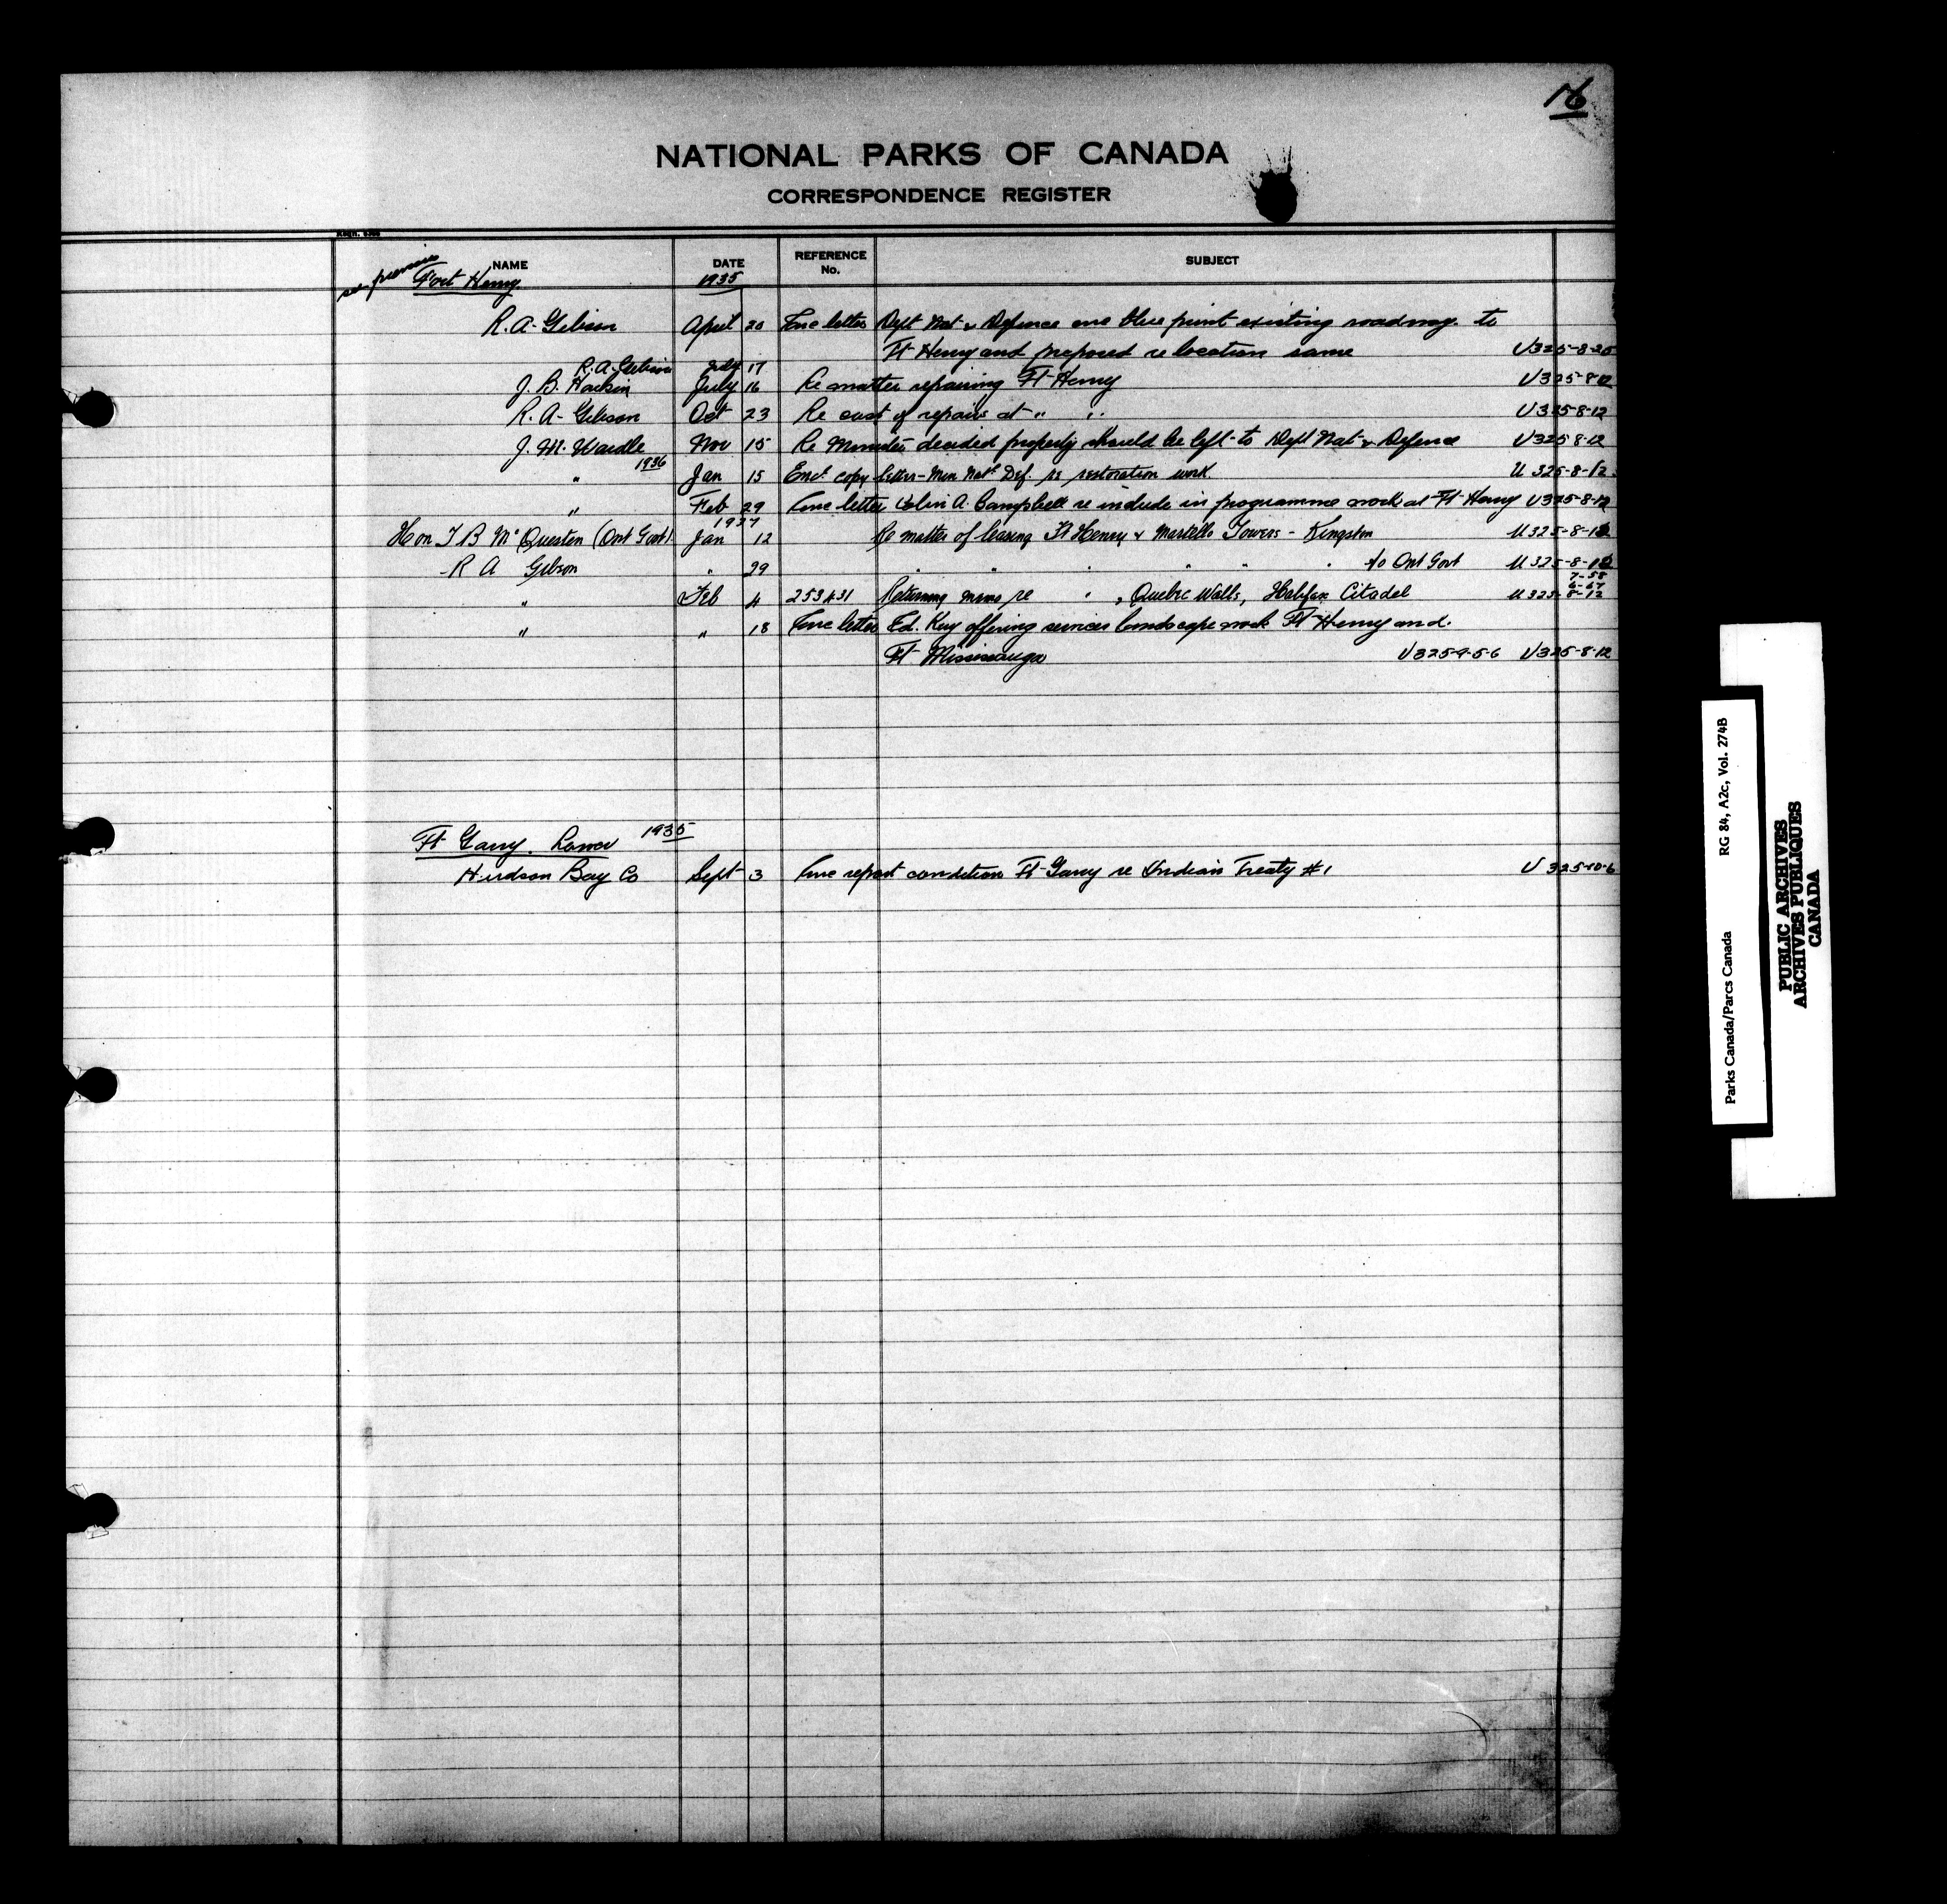 16
NATIONAL PARKS OF CANADA
CORRESPONDENCE REGISTER
NAME DATE REFERENCE No. SUBJECT
see previous Fort Henry 1935
R. A. Gibson April 20 Enc letter Dept Nat'l Defence enc blue print existing roadway to
Ft Henry and proposed re location same U325-8-20
R. A. Gibson July 17
J. B. Harkin July 16 Re matter repairing Ft Henry U325-8-12
R. A. Gibson Oct 23 Re cost of repairs at " " U325-8-12
J. M. Wardle Nov 15 Re Minister decided property should be left to Dept Nat'l Defence U325-8-12
1936
" Jan 15 Encl copy letters - Min Natl Def. re restoration work. U 325-8-12
" Feb 29 Enc letter Colin A. Campbell re include in programme work at Ft Henry U325-8-12
1937
Hon T B McQuesten (Ont Govt) Jan 12 Re matter of leasing Ft Henry & Martello Towers - Kingston U325-8-12
R A Gibson " 29 " " " " " to Ont Govt U325-8-12
7-58
6-67
" Feb 4 253431 Returning memo re " , Quebec Walls, Halifax Citadel U325-8-12
" " 18 Enc letter Ed. Kay offering services landscape work Ft Henry and
Ft Mississauga U325-9-5-6 U325-8-12
Ft Garry. Lower 1935
Hudson Bay Co Sept 3 Enc report condition Ft Garry re Indian Treaty #1 U 325-10-6
Parks Canada/Parcs Canada RG 84, A2c, Vol. 274B
PUBLIC ARCHIVES
ARCHIVES PUBLIQUES
CANADA